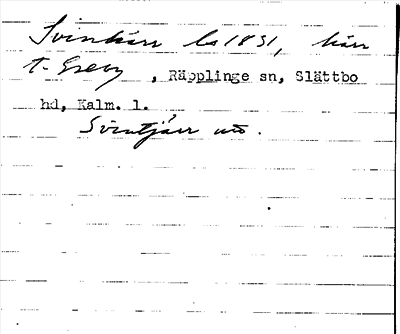 Svinkärr ls 1831, kärr
t. Greby, Räpplinge sn, Slättbo
hd, Kalm. l.
Svintjärr utt.